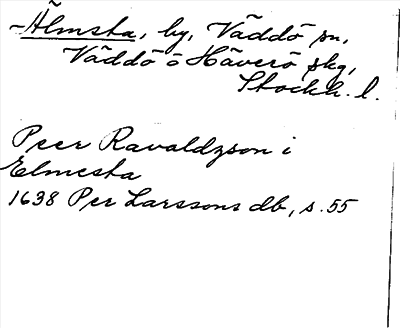 Älmsta, by, Väddö sn,
Väddö o Häverö skg,
Stockh. l.
Peer Ravaldzson i
Elmesta
1638 Per Larssons db, s. 55